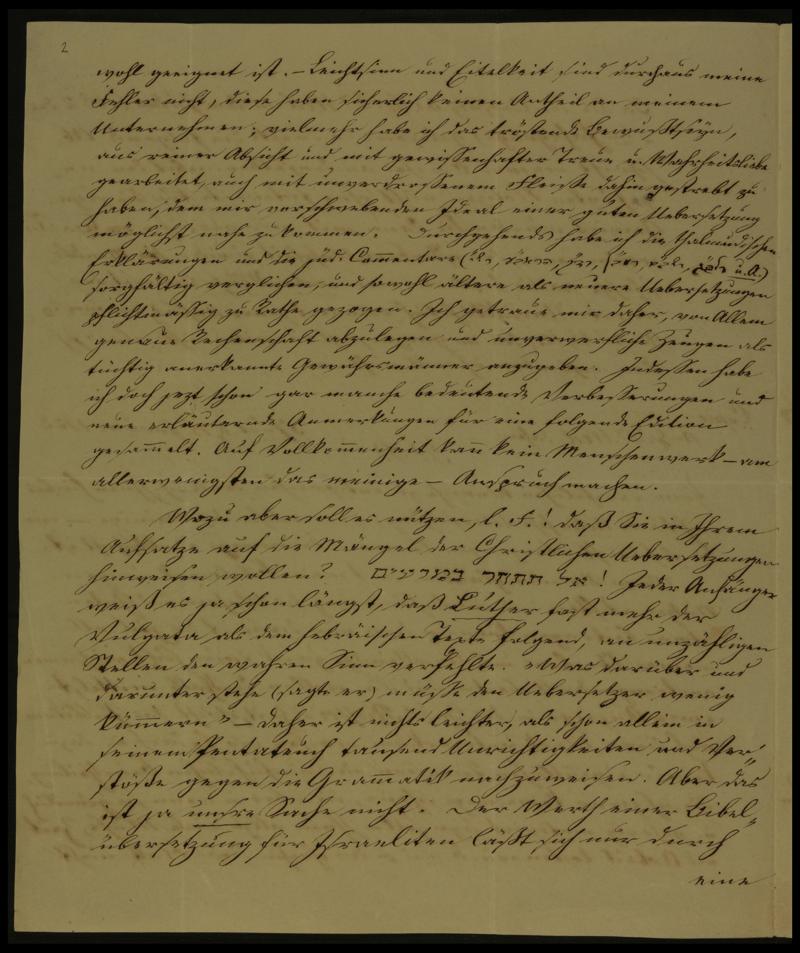 2
wohl geeignet ist. – Leichtsinn und Eitelkeit sind durchaus meine
Fehler nicht, diese haben sicherlich keinen Antheil an meinem
Unternehmen; vielmehr habe ich das tröstende Bewußtseyn,
aus reiner Absicht und mit gewissenhafter Treue u. Wahrheitsliebe
gearbeitet, auch mit unverdrossenem Fleiße dahin gestrebt zu
haben, dem mir vorschwebenden Ideal einer guten Uebersetzung
möglichst nahe zu kommen. Durchgehends habe ich die thalmudischen
Erklärungen und die jüd. Com̄entare ( u. A.)
sorgfältig verglichen, und sowohl ältere als neuere Uebersetzungen
pflichtmässig zu Rathe gezogen. Ich getraue mir daher, von Allem
genaue Rechenschaft abzulegen und unverwerfliche Zeugen als
tüchtig anerkannte Gewährsmänner anzugeben. Indessen habe
ich doch jezt schon gar manche bedeutende Verbesserungen und
neue erläuternde Anmerkungen für eine folgende Edition
gesam̄elt. Auf Vollkom̄enheit kan̄ kein Menschenwerk – am
allerwenigsten das meinige – Anspruch machen.
Wozu aber soll es nützen, l. F.! daß Sie in Ihrem
Aufsatze auf die Mängel der Christlichen Uebersetzungen
hinweisen wollen? אל תתחר במרעים! Jeder Anfänger
weiß es ja schon längst, daß Luther fast mehr der
Vulgata als dem hebräischen Texte folgend, an unzähligen
Stellen den wahren Sinn verfehlte. „Was darüber und
darunter stehe (sagte er) müsse den Uebersetzer wenig
küm̄ern" – daher ist nichts leichter, als schon allein in
seinem Pentateuch tausend Unrichtigkeiten und Ver-
stöße gegen die Gram̄atik nachzuweisen. Aber das
ist ja unsre Sache nicht. Der Werth einer Bibel-
übersetzung für Israeliten läßt sich nur durch
eine